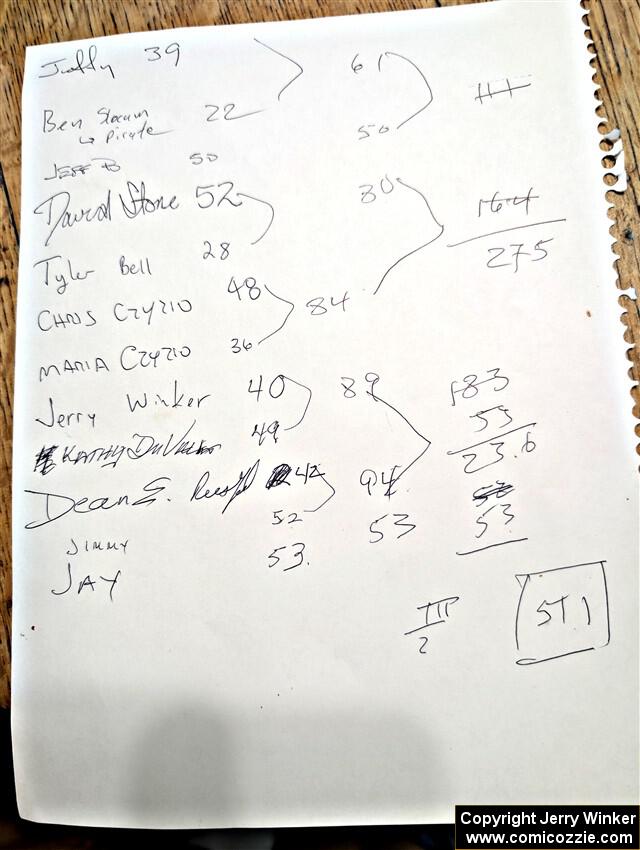 Jeffy 39 61
Ben Slocum 22
↳ Pirate 50
JEFF B 50
David Stone 52 80 164
275
Tyler Bell 28
CHRIS CZYZIO 48 84
MARIA CZYZIO 36
Jerry Winker 40 89 183
KATHY 49 53
236
Dean E. 42 94
52 53
JIMMY 53
JAY 53.
2 511
Copyright Jerry Winker
www.comicozzie.com